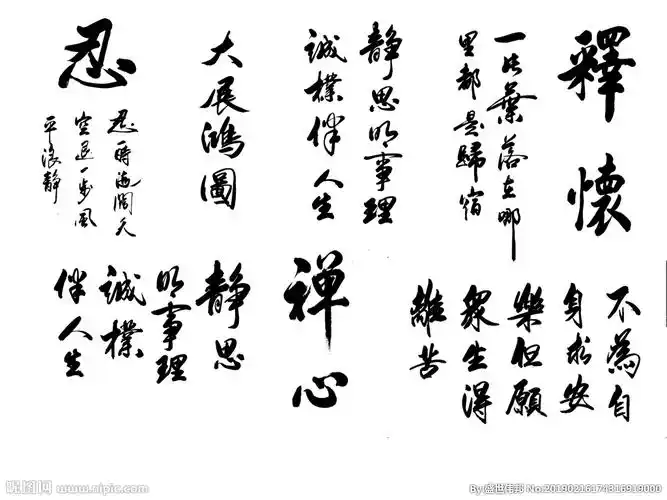 釋懷
一片葉落在哪
里都是歸宿
靜思明事理
誠樸伴人生
大展鴻圖
忍
忍一時海闊天
空退一步風
平浪靜
不為自
身求安
樂但願
眾生得
離苦
禅心
靜思
明事理
誠樸
伴人生
昵图网 www.nipic.com
By:盛世伟邦 No:20190216174316919000